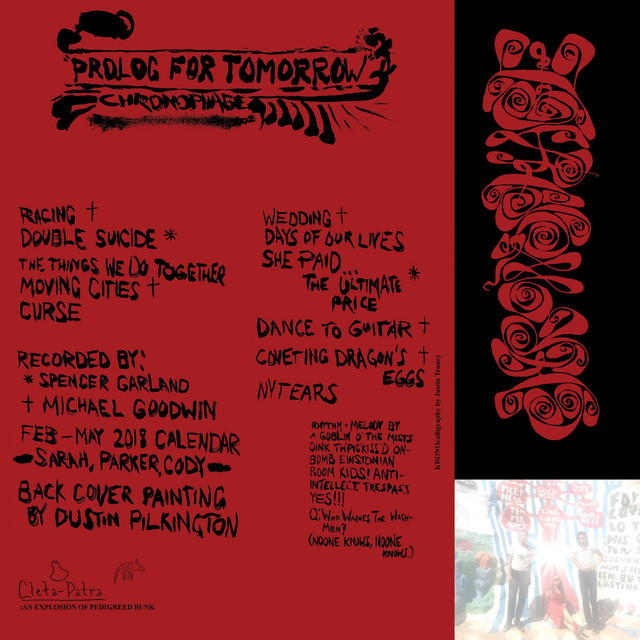 PROLOG FOR TOMORROW
CHRONOPHAGE
RACING †
DOUBLE SUICIDE *
THE THINGS WE DO TOGETHER
MOVING CITIES †
CURSE
WEDDING †
DAYS OF OUR LIVES
SHE PAID...
THE ULTIMATE *
PRICE
DANCE TO GUITAR †
COVETING DRAGON'S †
EGGS
NY TEARS
RECORDED BY:
* SPENCER GARLAND
† MICHAEL GOODWIN
FEB-MAY 2018 CALENDAR
-SARAH, PARKER, CODY-
BACK COVER PAINTING
BY DUSTIN PILKINGTON
RHYTHM + MELODY BY
A GOBLIN O' THE MISTS
OINK THPIGKISS'D ON-
BOMB EINSTONIAN
ROOM KIDS! ANTI-
INTELLECT TRESPASS
YES!!!
Q: WHO WASHES THE WASH-
MEN?
(NOONE KNOWS, NOONE
KNOWS.)
KRONOcalligraphy by Justin Tenney
Cleta-Patra
:AN EXPLOSION OF PEDIGREED BUNK